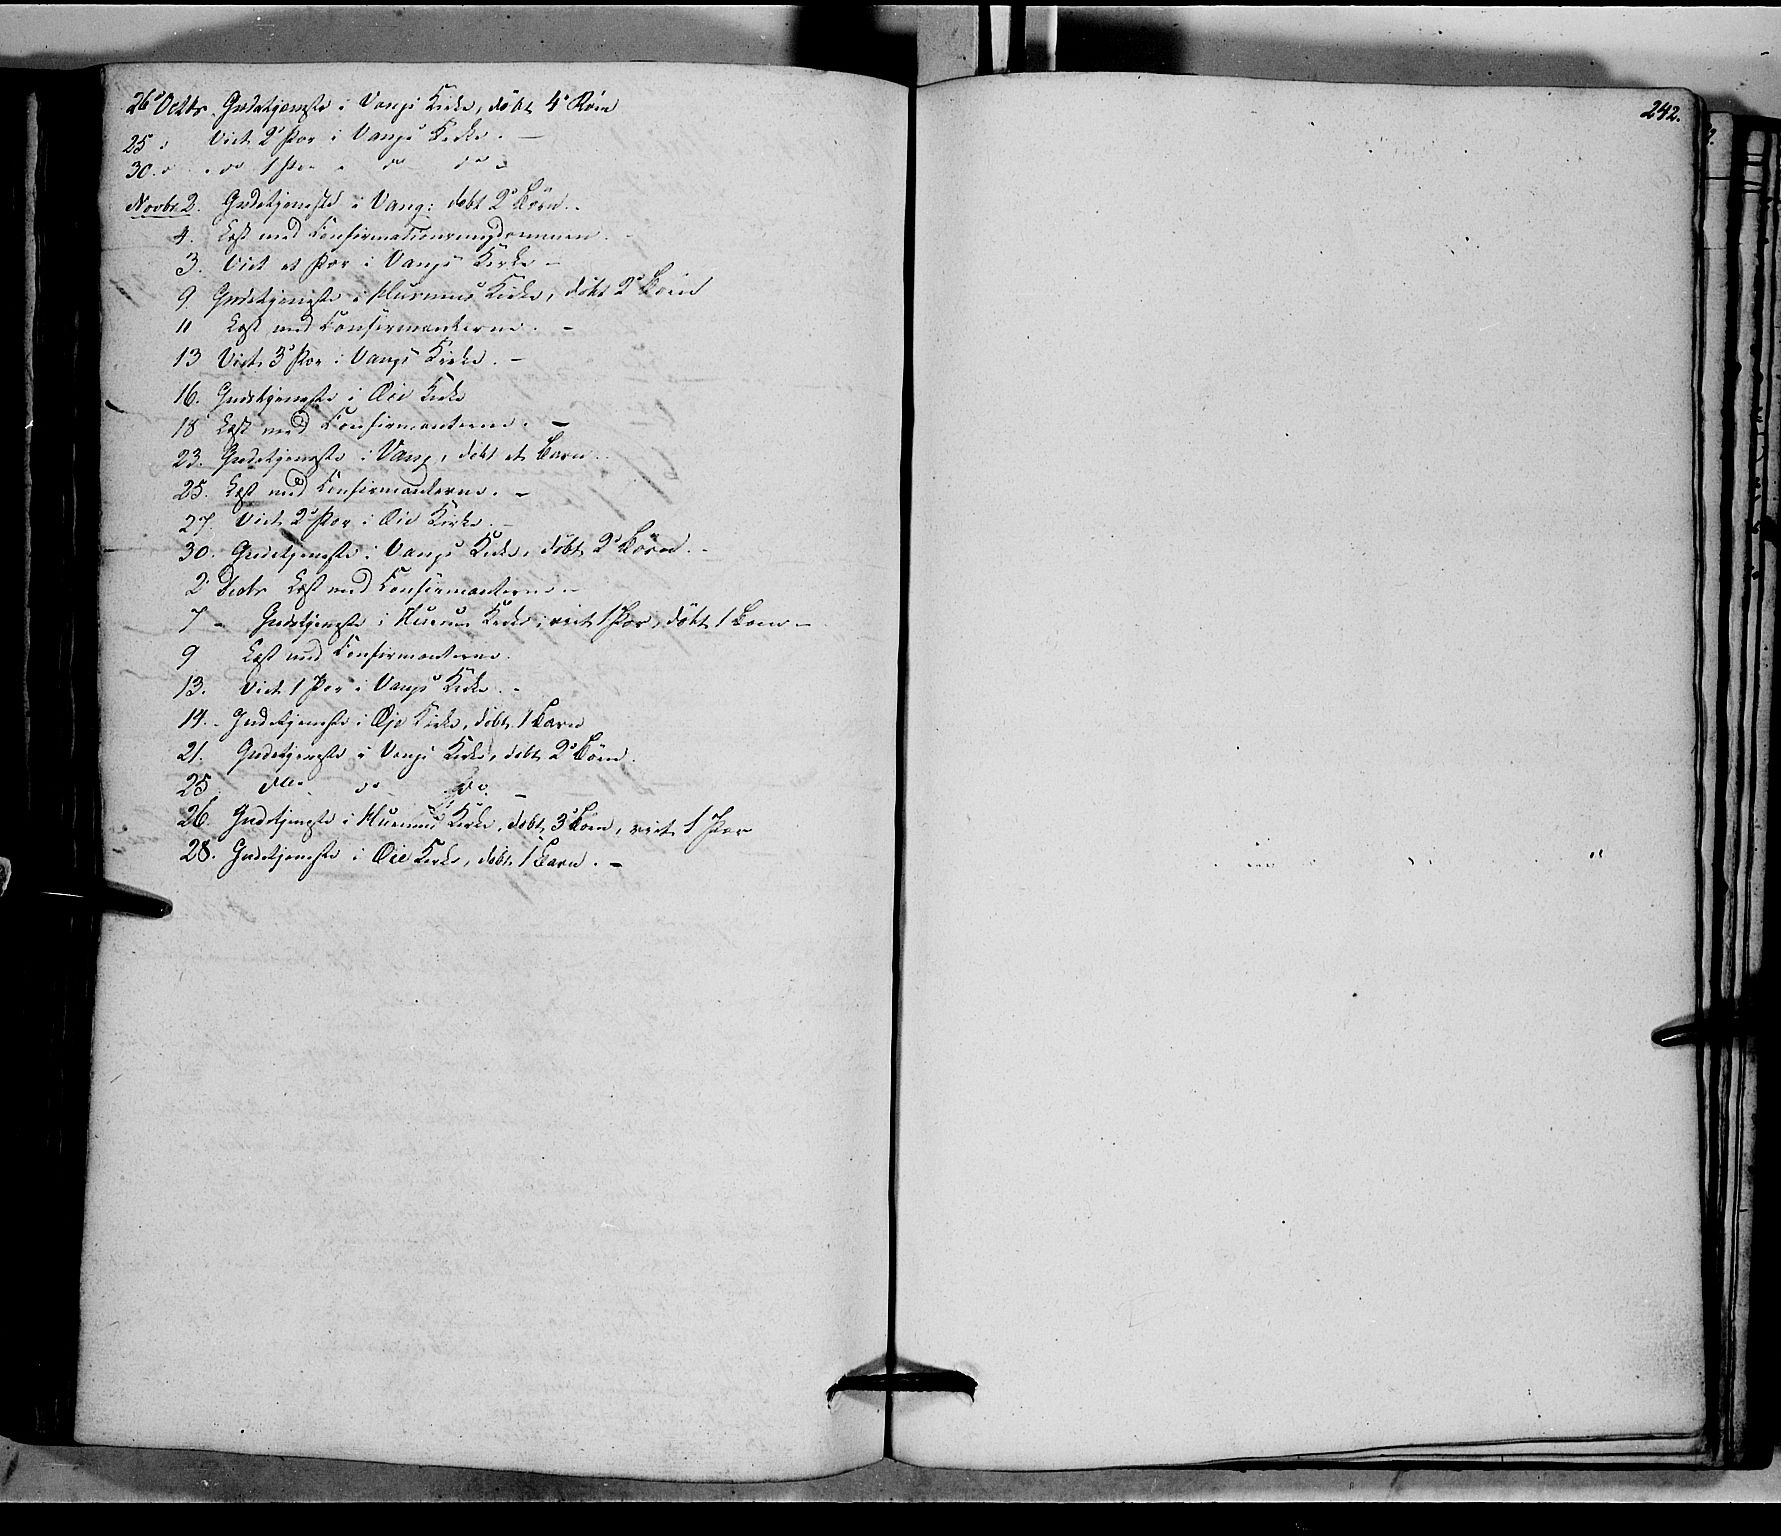 26 Octbr. Gudstjeneste i Vangs Kirke, döbt 4 Börn
25 " Viet 2 Par i Vangs Kirke. —
30. " do 1 Par " do do
Novbr 2. Gudstjeneste i Vang: döbt 2 Börn. -
4. Læst med Confirmationsungdommen. -
3. Viet et Par i Vangs Kirke -
9 Gudstjeneste i Hurums Kirke, döbt 2 Börn
11 Læst med Confirmanterne. -
13 Viet 3 Par i Vangs Kirke. -
16. Gudstjeneste i Øie Kirke
18 Læst med Confirmanterne. -
23. Gudstjeneste i Vang, döbt et Barn.
25. Læst med Confirmanterne. -
27. Viet 2 Par i Øie Kirke. -
30. Gudstjeneste i Vangs Kirke, döbt 2 Börn. -
2 Decbr Læst med Confirmanterne -
7 - Gudstjeneste i Hurum Kirke, viet 1 Par, döbt 1 Barn -
9 Læst med Confirmanterne.
13. Viet 1 Par i Vangs Kirke. -
14. - Gudstjeneste i Øje Kirke, döbt 1 Barn
21. Gudstjeneste i Vangs Kirke, döbt 2 Börn.
25. do do. -
26. Gudstjeneste i Hurums Kirke, döbt 3 Börn, viet 1 Par
28. Gudstjeneste i Øie Kirke, döbt 1 Barn. -
242.